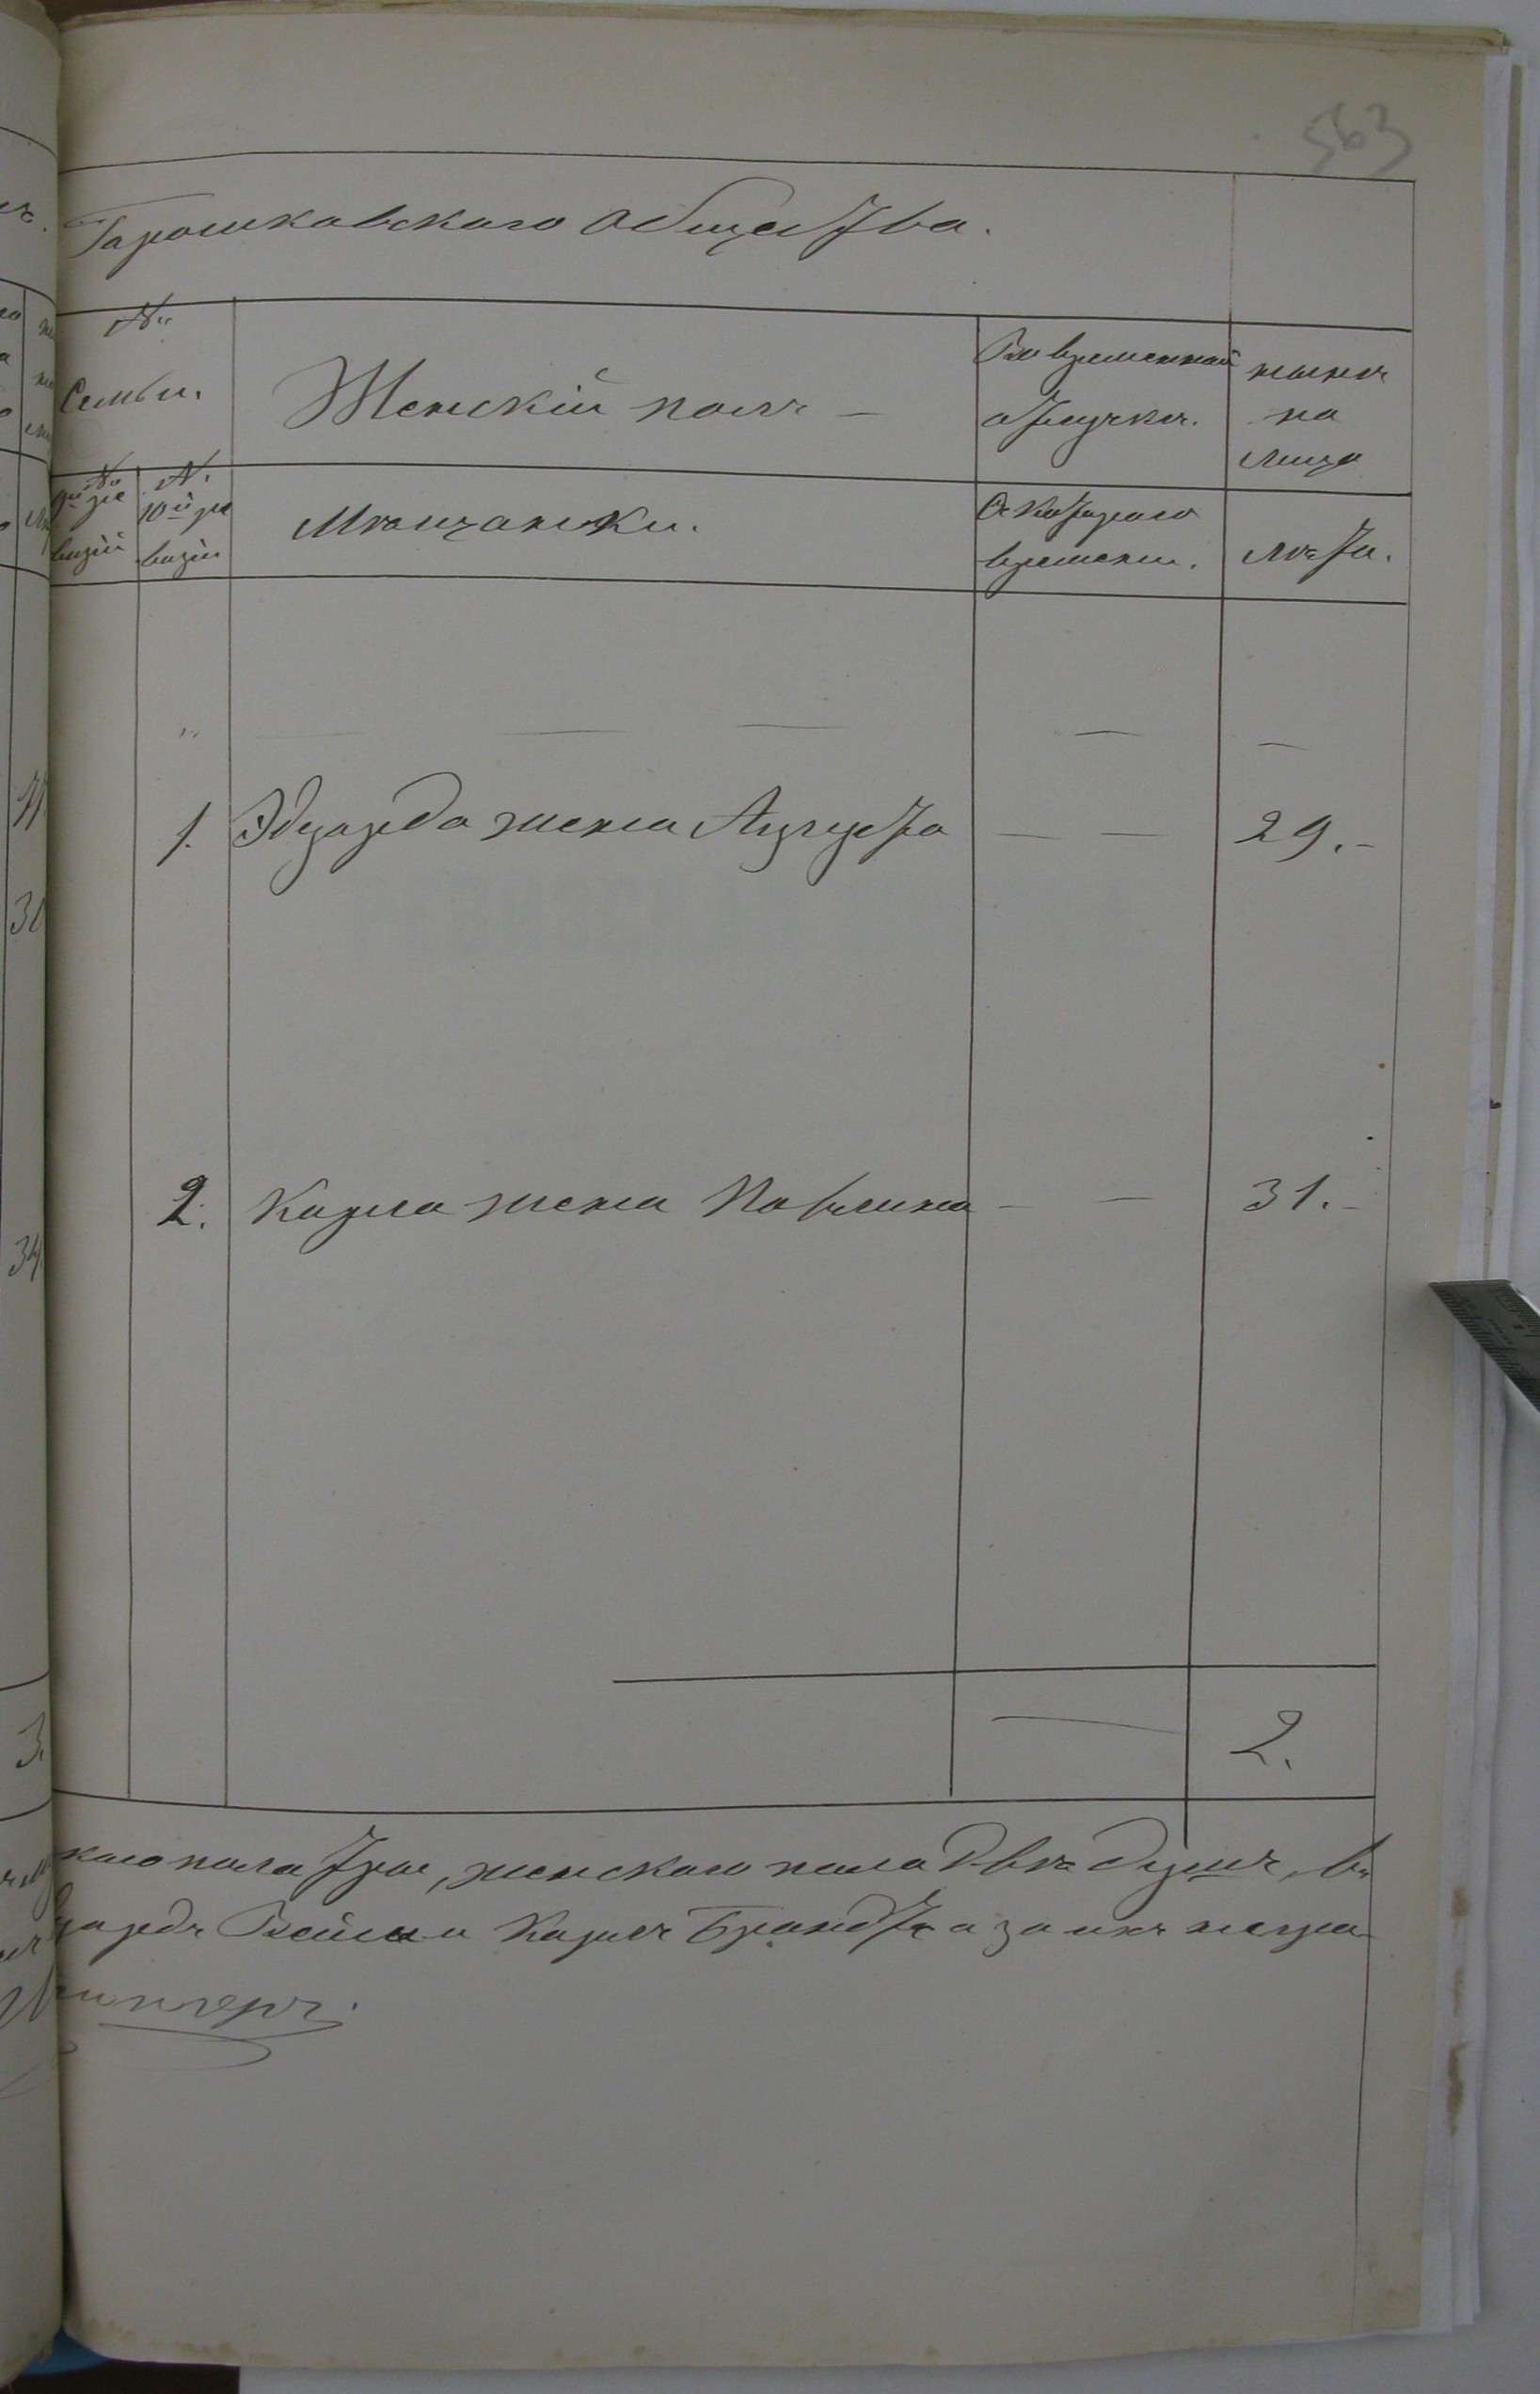 563
Горошковского Общества.
№
Семьи.
Женскій полъ —
Во временной
отлучкѣ.
нынѣ
на
лицо
№
9й ре
визіи
№.
10й ре
визіи
Мѣщанки.
Съ котораго
времени.
Лѣта.
1. Эдуарда жена Августа — — 29. -
2. Карла жена Паулина - — 31. -
2.
каго пола трое, женскаго пола двѣ души, въ
Карлъ Брандтъ а за ихъ негра
30
34
3.